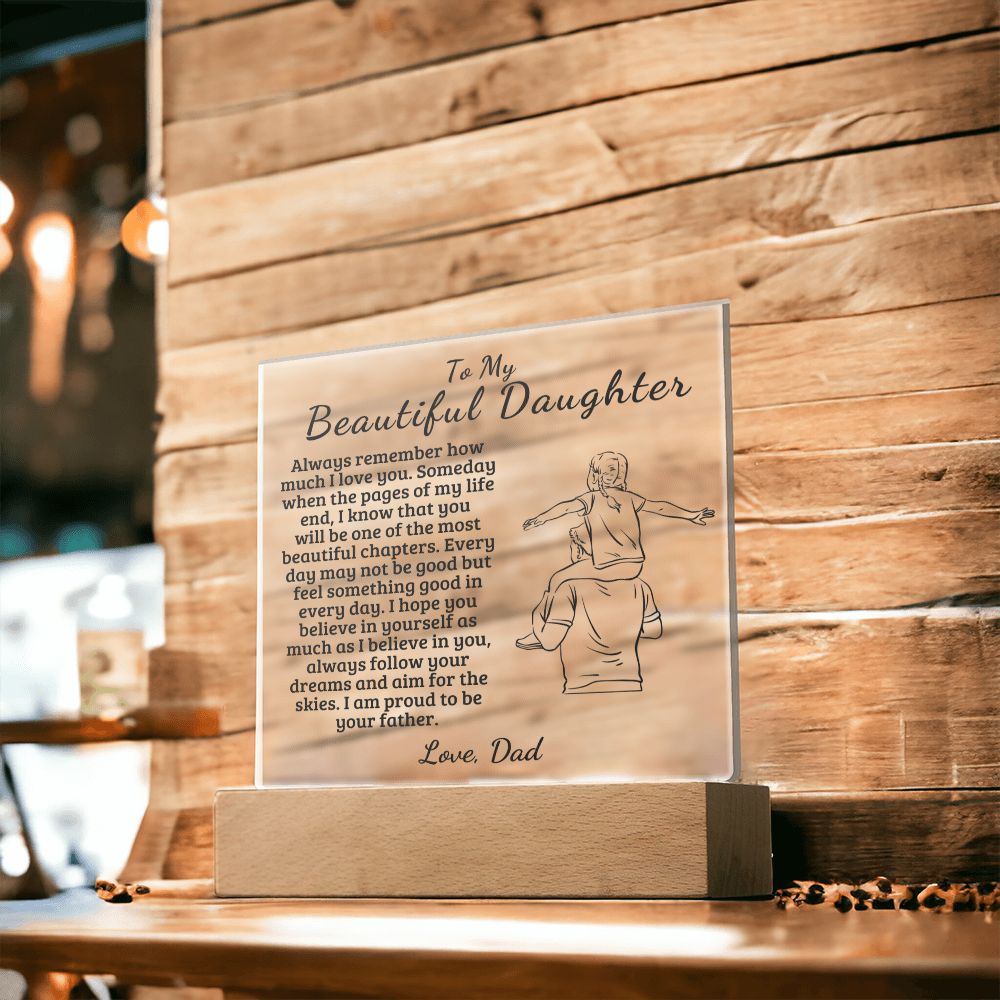 To My
Beautiful Daughter
Always remember how
much I love you. Someday
when the pages of my life
end, I know that you
will be one of the most
beautiful chapters. Every
day may not be good but
feel something good in
every day. I hope you
believe in yourself as
much as I believe in you,
always follow your
dreams and aim for the
skies. I am proud to be
your father.
Love, Dad